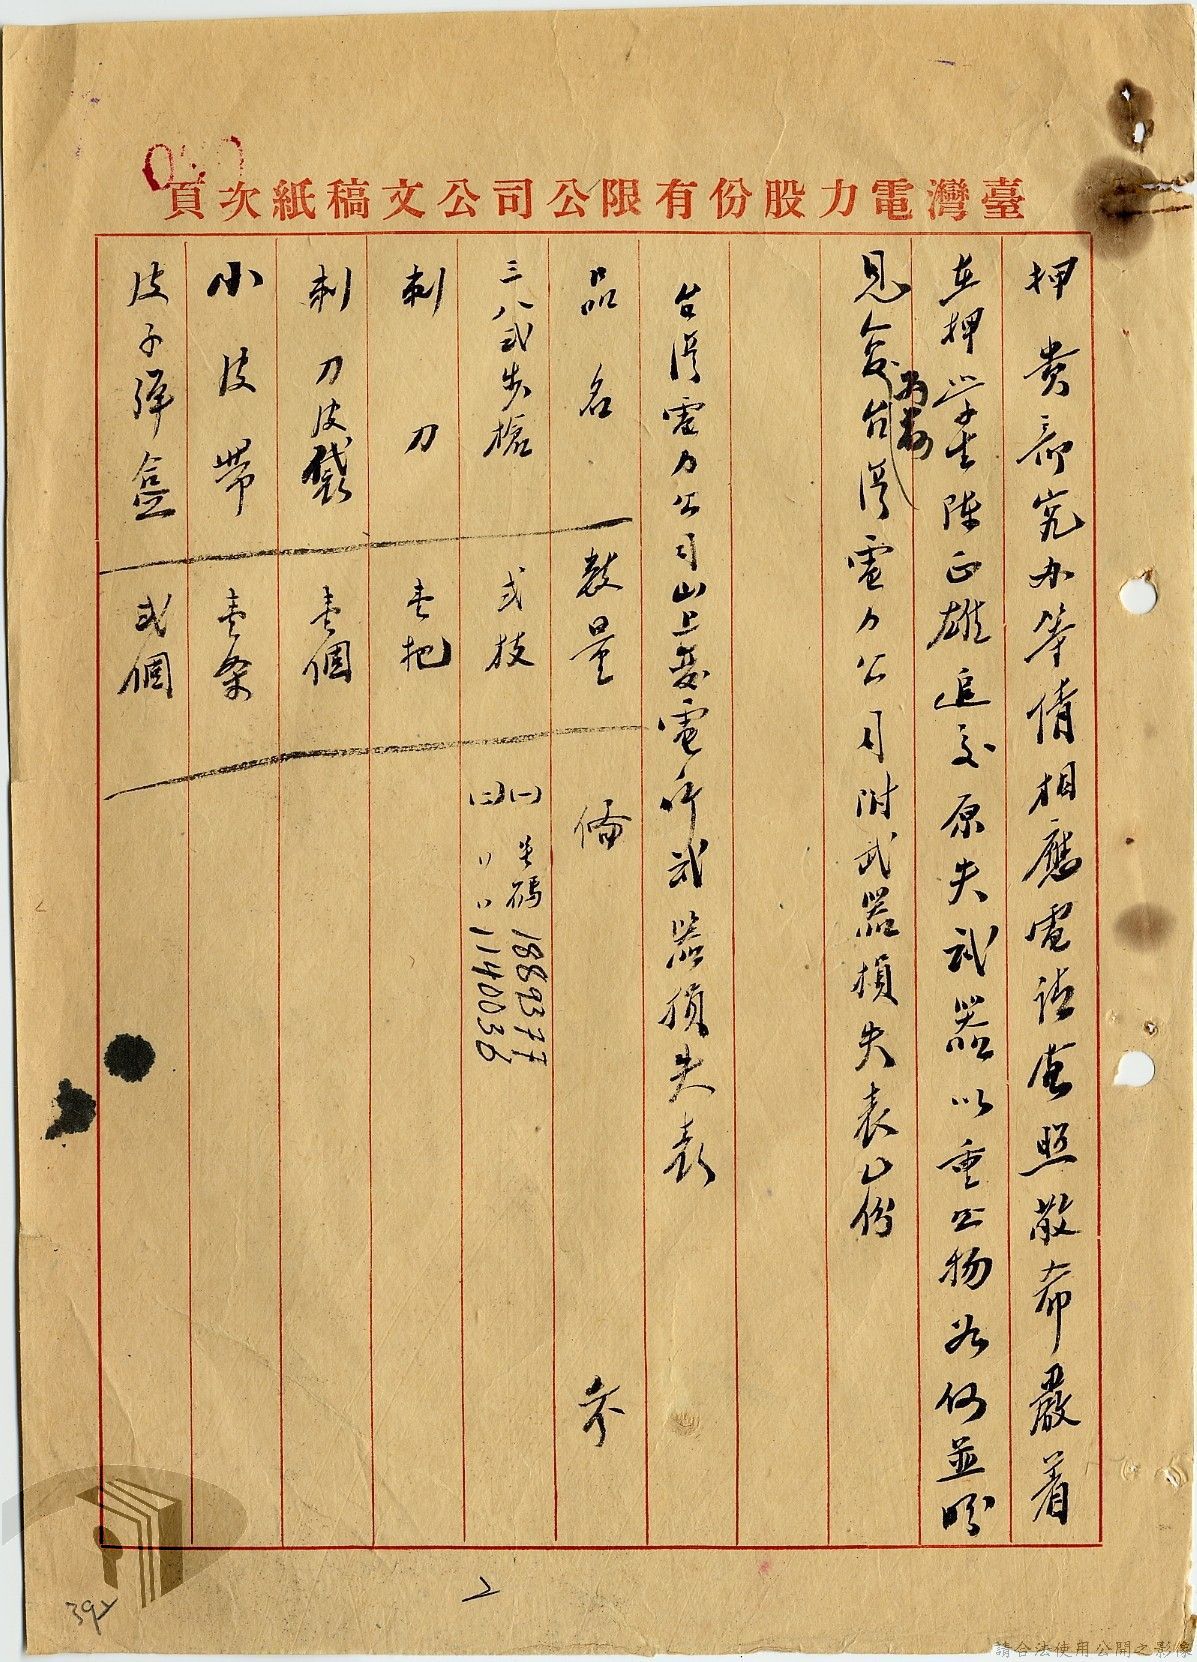 臺灣電力股份有限公司公文稿紙次頁
押貴部究办等情相應電請查照敬希嚴着
在押學生陳正雄追交原失武器以重公物為何並盼
見复台湾電力公司附武器損失表乙份
台湾電力公司山上变電所武器損失表
品名 数量 備考
三八式步槍 弍枝 (一)号碼1889377
(二)〃〃1140036
刺刀 壹把
刺刀皮袋 壹個
小皮帶 壹条
皮子弹盒 弍個
2
392
請合法使用公開之影像